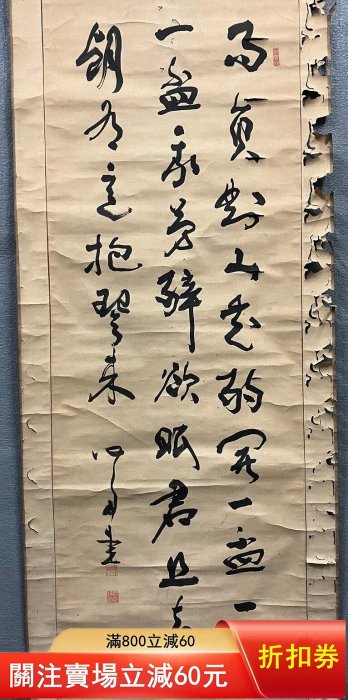 對山花酌開一盃一
一盃我醉欲眠君且去
朝有意抱琴來
滿800立減60
關注賣場立減60元
折扣券